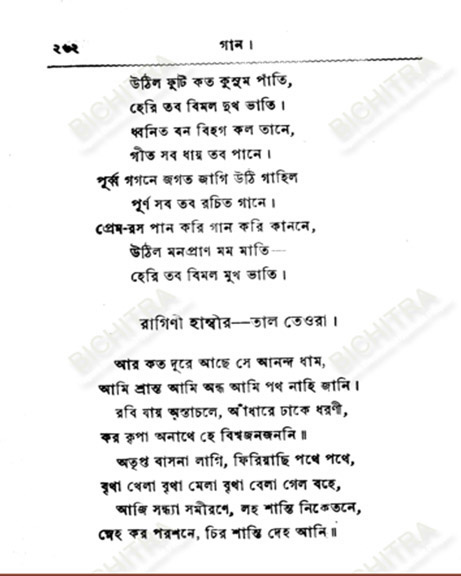 ২৩২ গান।
উঠিল ফুটি কত কুসুম পাঁতি,
হেরি তব বিমল মুখ ভাতি।
ধ্বনিত বন বিহগ কল তানে,
গীত সব ধায় তব পানে।
পূর্ব্ব গগনে জগত জাগি উঠি গাহিল
পূর্ণ সব তব রচিত গানে।
প্রেম-রস পান করি গান করি কাননে,
উঠিল মনপ্রাণ মম মাতি—
হেরি তব বিমল মুখ ভাতি।
রাগিণী হাম্বীর—তাল তেওরা।
আর কত দূরে আছে সে আনন্দ ধাম,
আমি শ্রান্ত আমি অন্ধ আমি পথ নাহি জানি।
রবি যায় অস্তাচলে, আঁধারে ঢাকে ধরণী,
কর কৃপা অনাথে হে বিশ্বজনজননি॥
অতৃপ্ত বাসনা লাগি, ফিরিয়াছি পথে পথে,
বৃথা খেলা বৃথা মেলা বৃথা বেলা গেল বহে,
আজি সন্ধ্যা সমীরণে, লহ শান্তি নিকেতনে,
স্নেহ কর পরশনে, চির শান্তি দেহ আনি॥
BICHITRA
BICHITRA
BICHITRA
BICHITRA
BICHITRA
BICHITRA